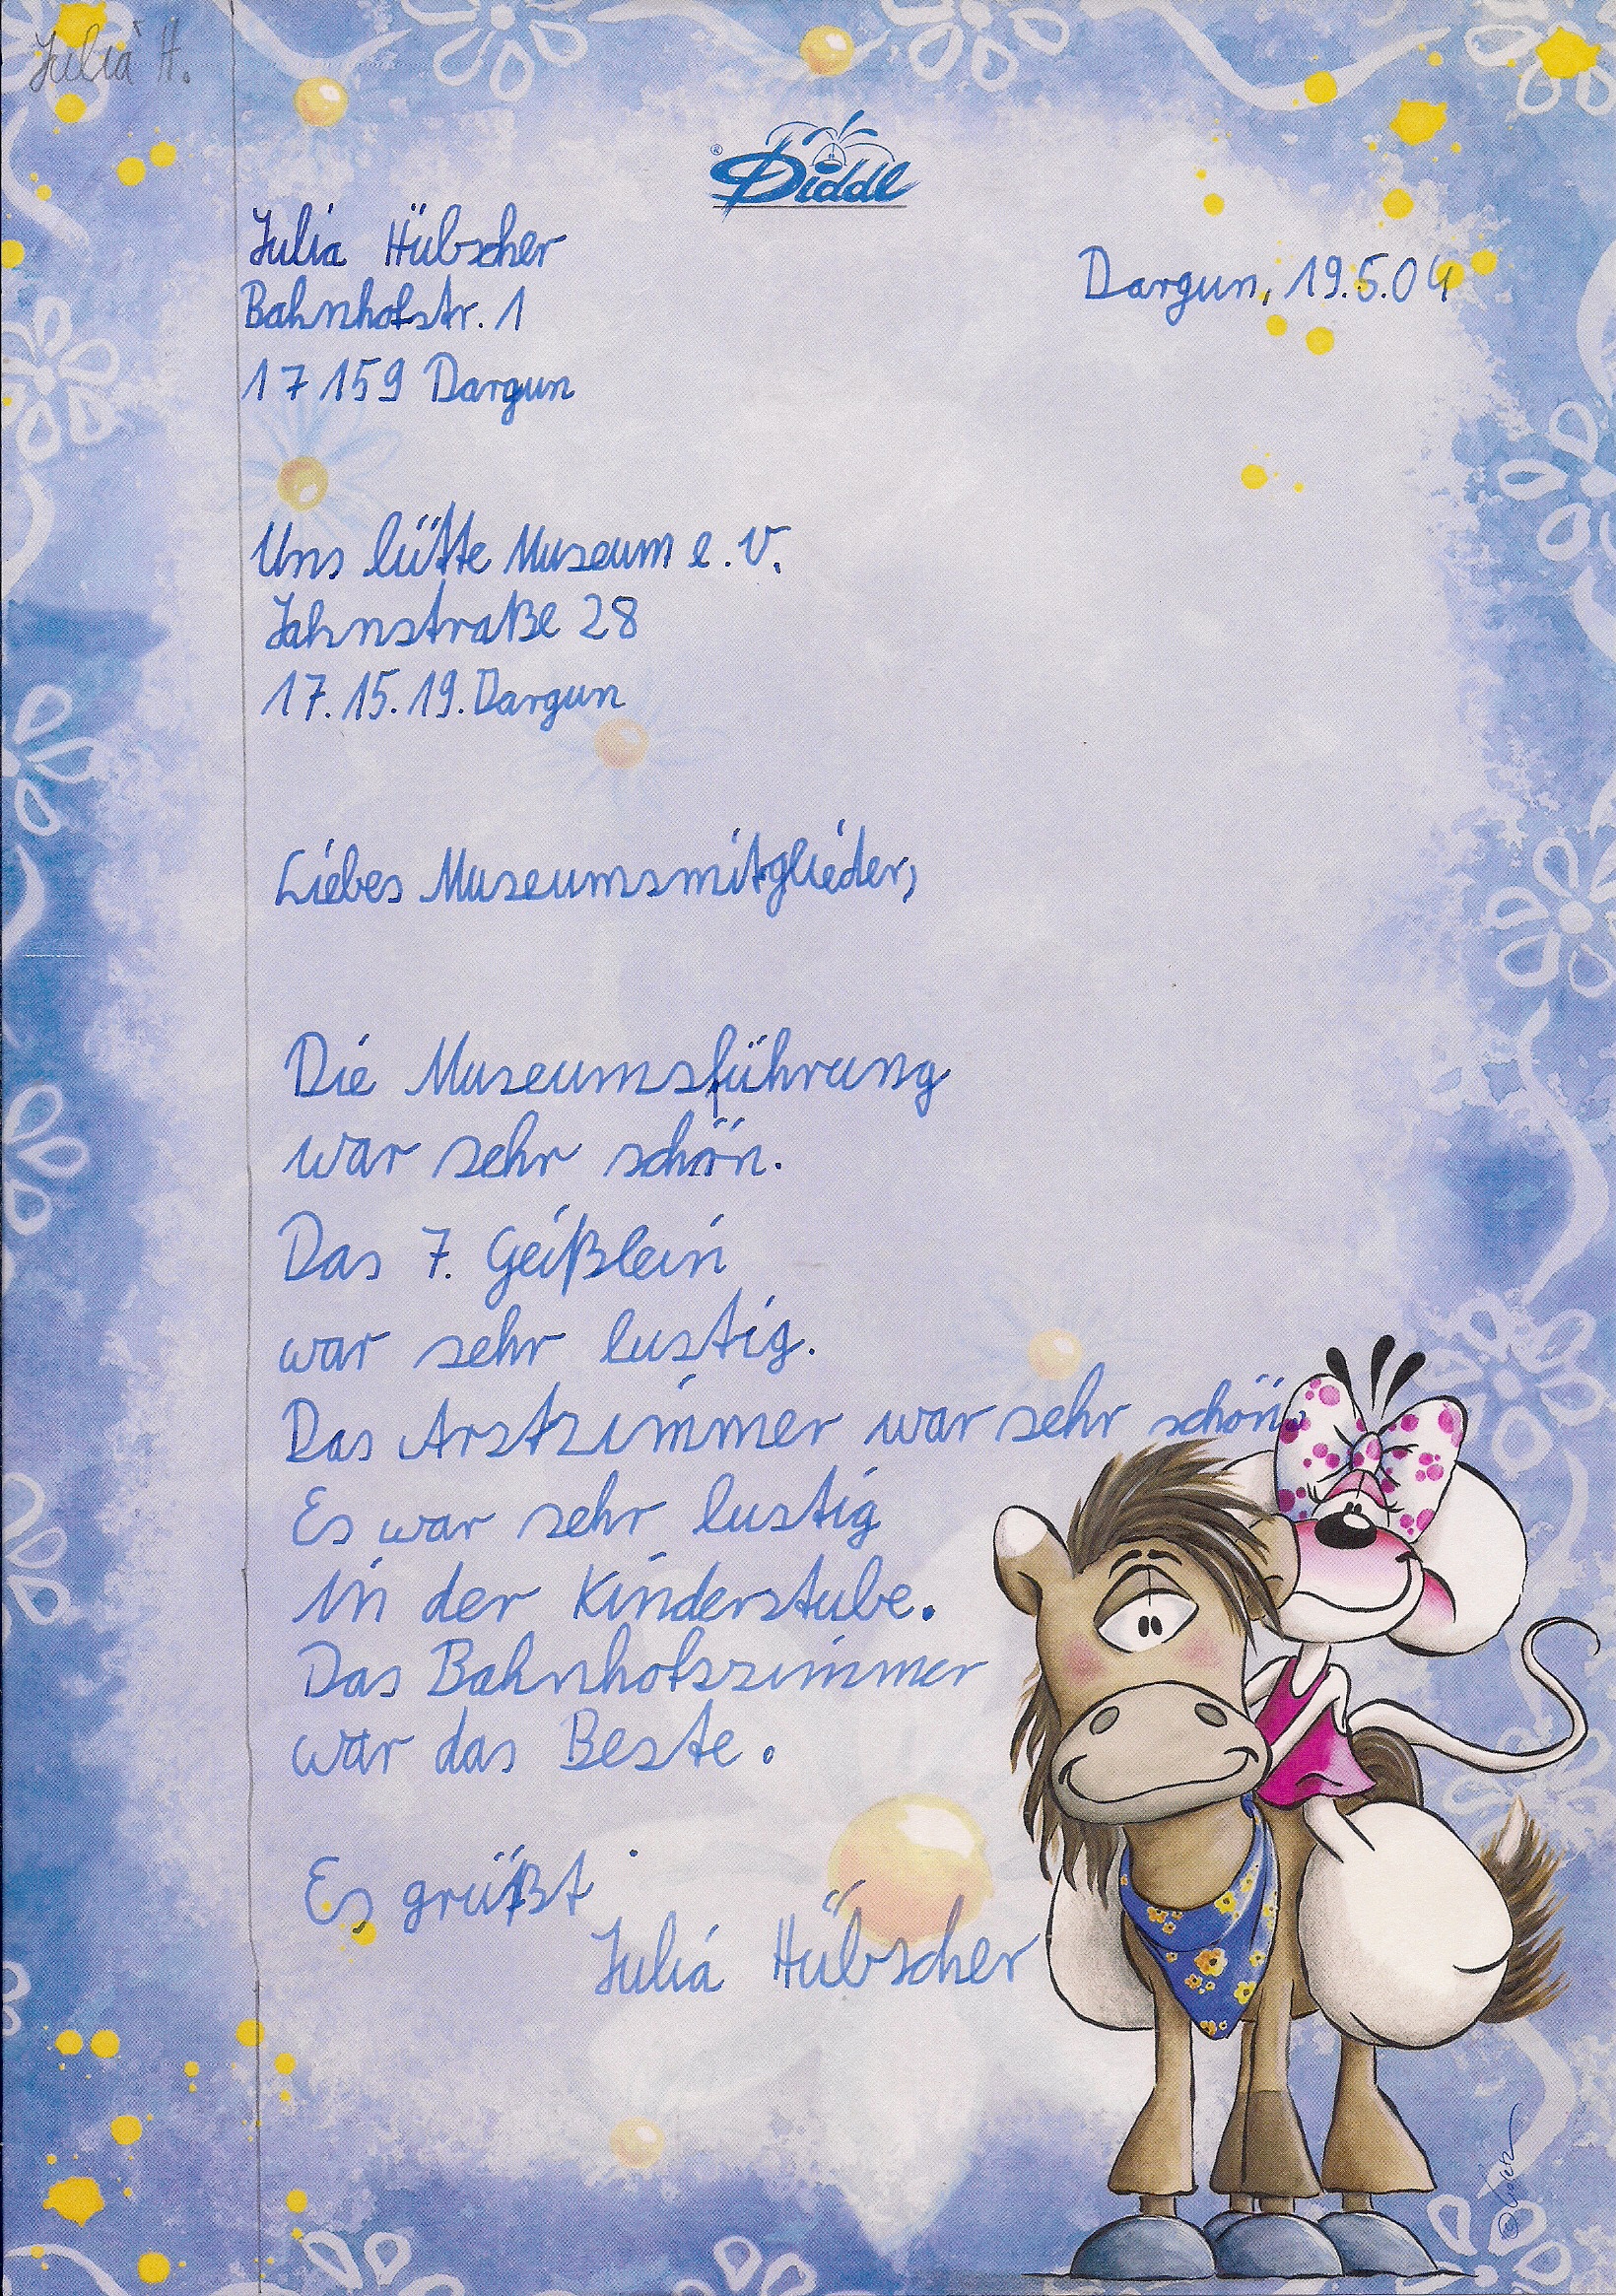 Julia H.
Diddl
Julia Hübscher
Dargun, 19.5.04
Bahnhofstr. 1
17159 Dargun
Uns lütte Museum e.V.
Jahnstraße 28
17.15.19. Dargun
Liebes Museumsmitglieder,
Die Museumsführung
war sehr schön.
Das 7. Geißlein
war sehr lustig.
Das Arstzimmer war sehr schön.
Es war sehr lustig
in der Kinderstube.
Das Bahnhofszimmer
war das Beste.
Es grüßt
Julia Hübscher